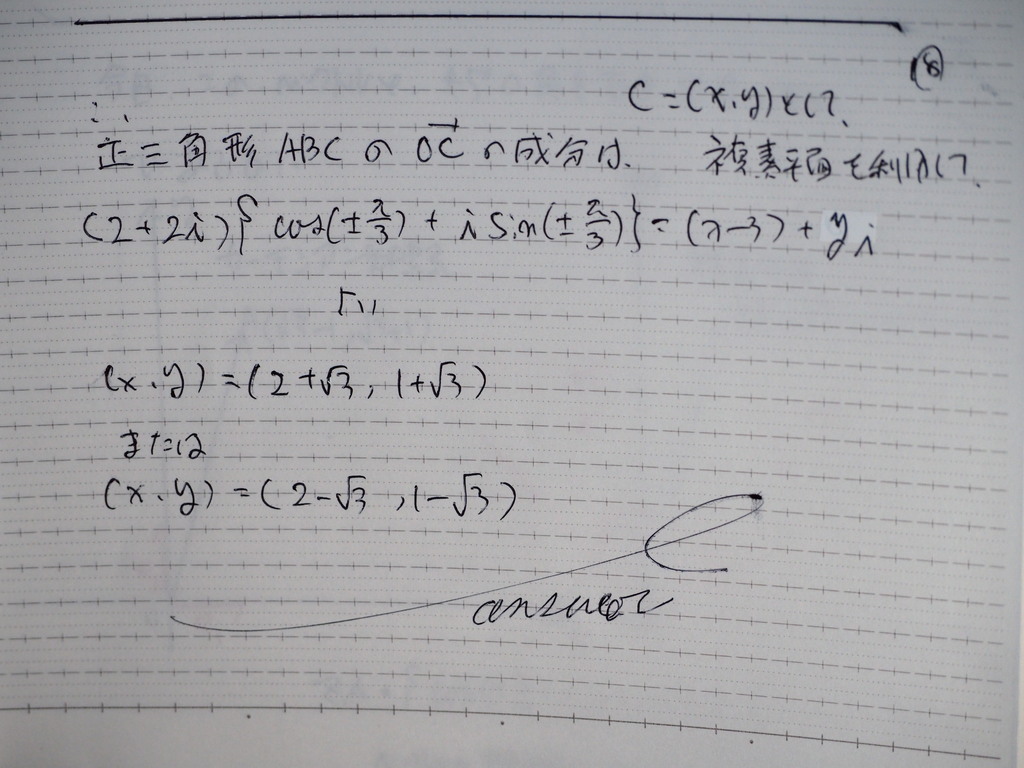 ⑧
C=(x,y)として、
∴
正三角形ABCのOC→の成分は、 複素平面を利用して、
(2+2i){cos(±π/3)+i sin(±π/3)}=(x-3)+yi
より
(x,y)=(2+√3, 1+√3)
または
(x,y)=(2-√3, 1-√3)
answer